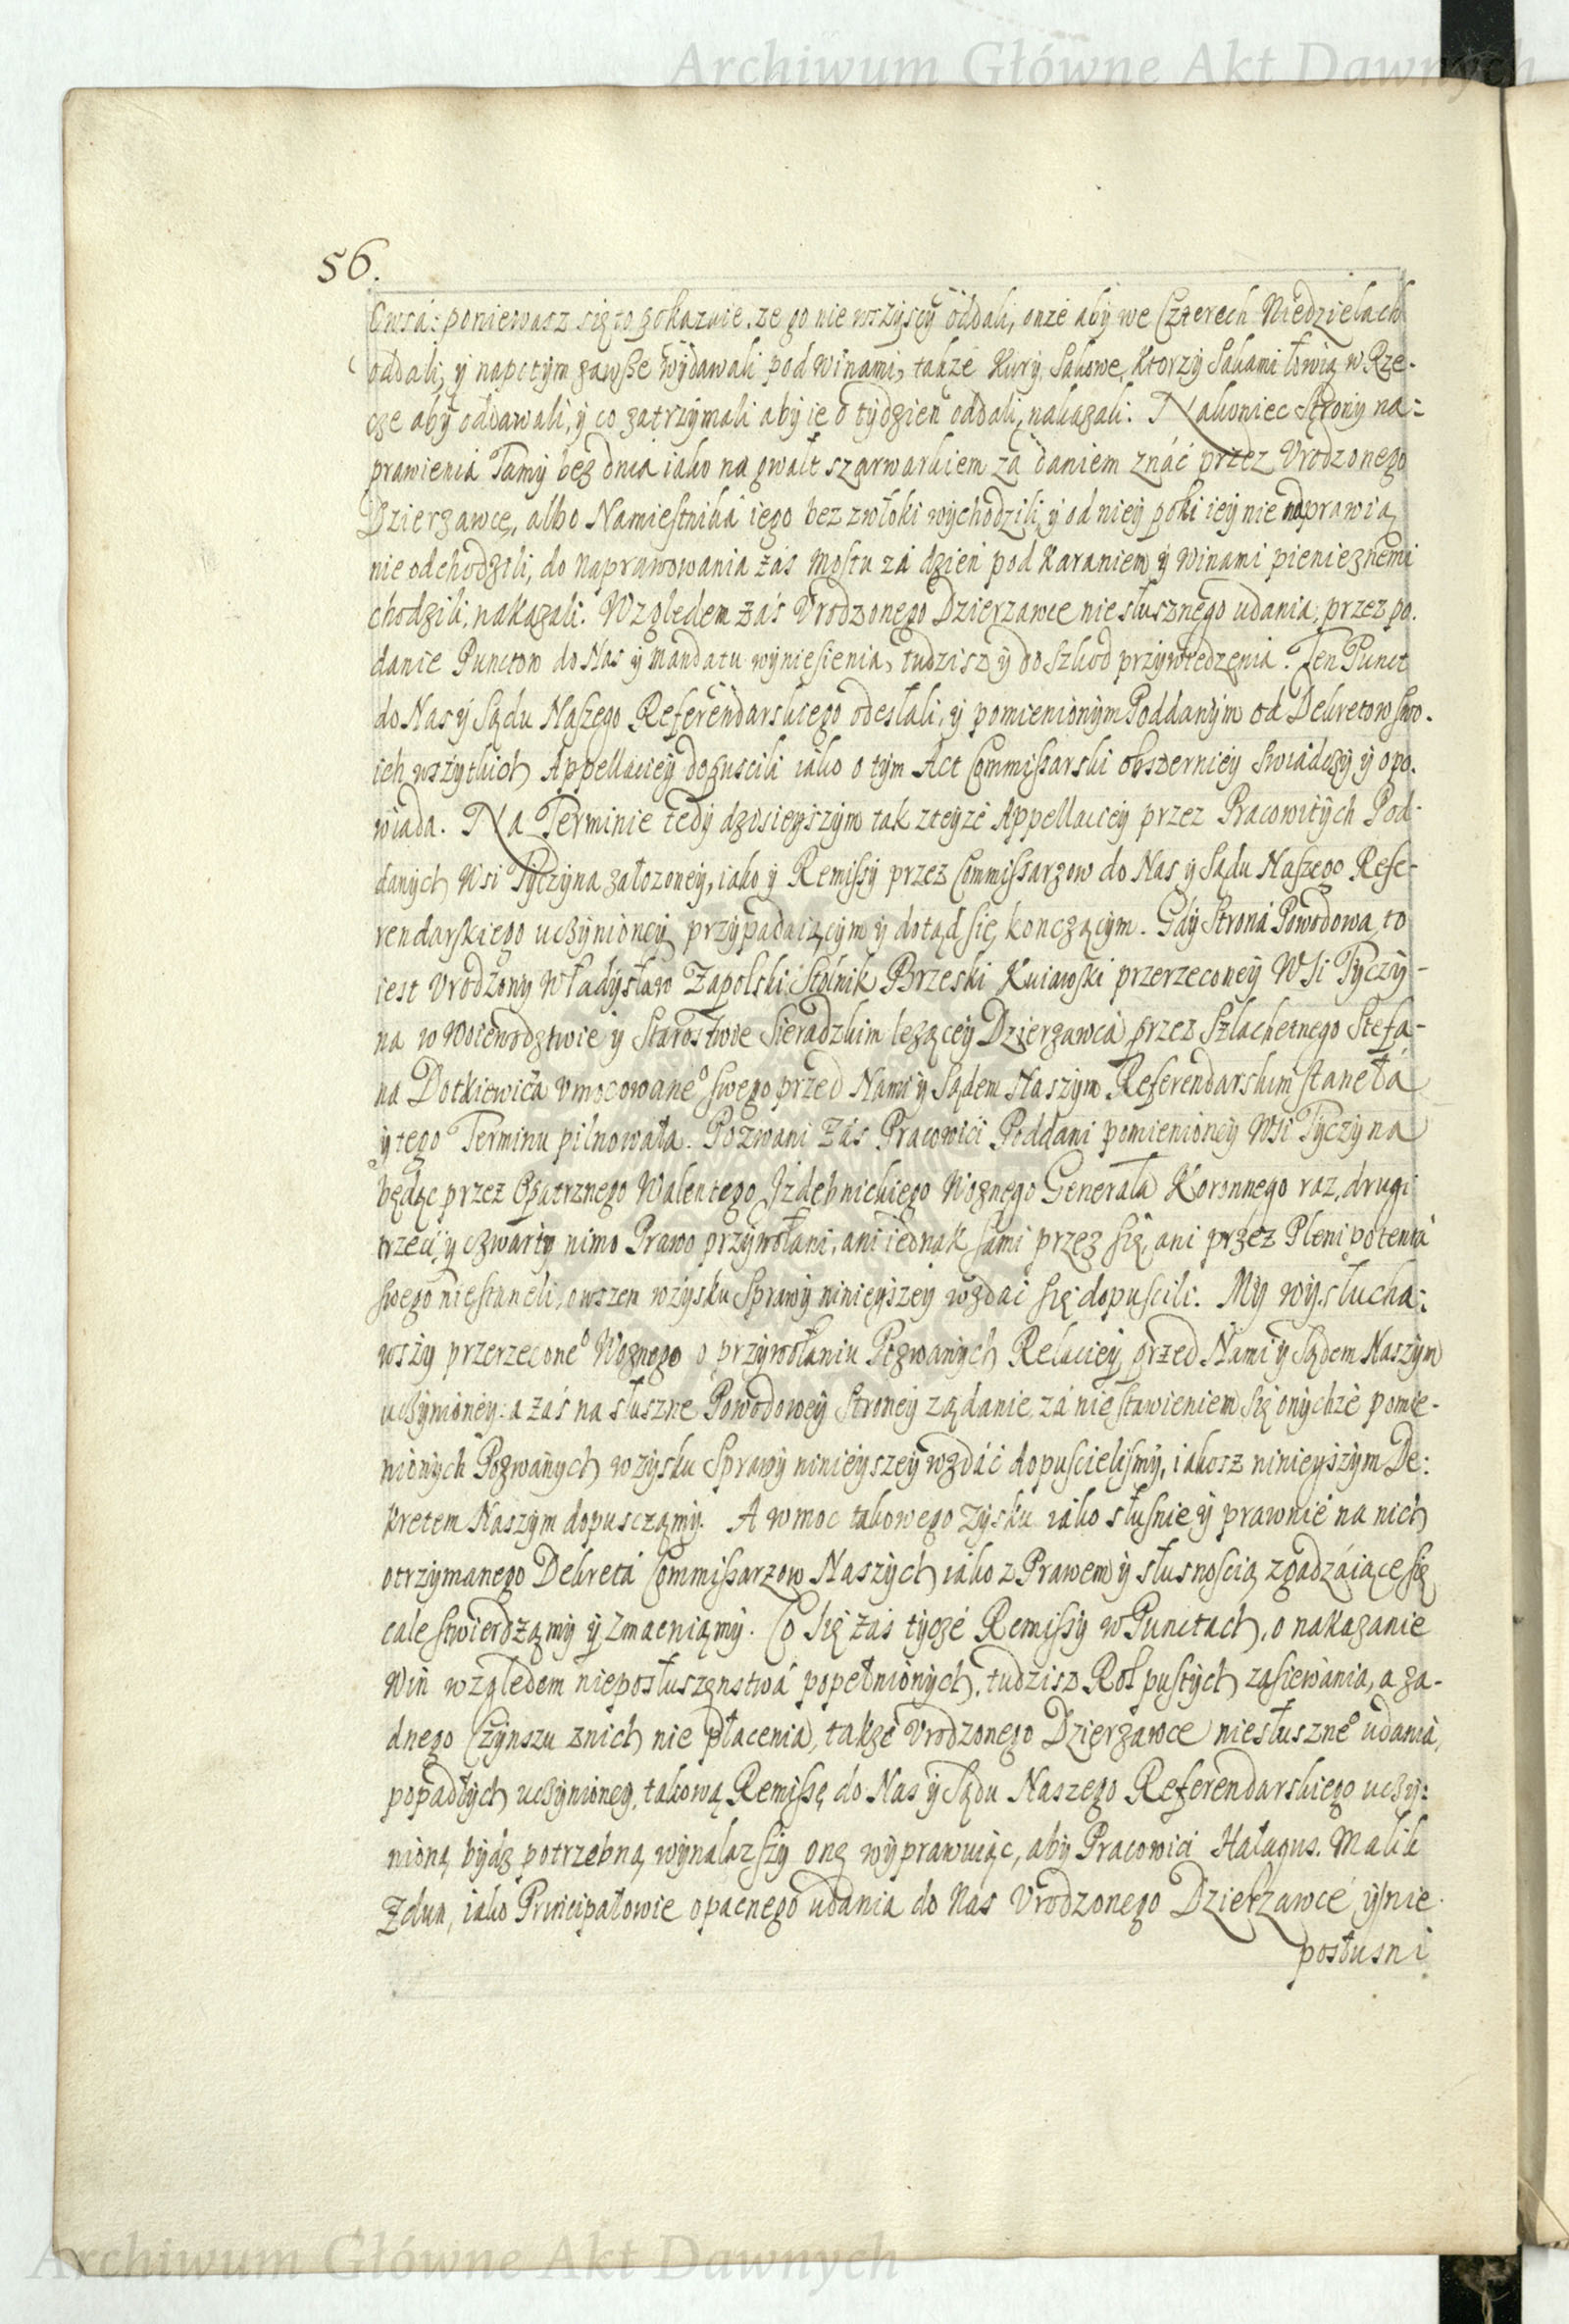 Archiwum Główne Akt Dawnych
56.
Owsá: poniewasz się to pokazuie, ze go nie wszyscy oddali, onze aby we Czterech Niedzielach
oddali, y napotym zawsze wydawali pod winami, takze Kury Sakowe, Ktorzy Sakami łowią w Rze-
cze aby oddawali, y co zatrzymali aby ie o tydzien oddali, nakazali. Nakoniec Strony na=
prawienia Tamy bez dnia iako na gwałt szarwarkiem za daniem znáć przez Vrodzonego
Dzierzawcę, albo Namiestniká iego bez zwłoki wychodzili, y od niey poki iey nie naprawią
nie odchodzili, do naprawowania zás Mostu zá dzień pod Karaniem y Winami pieniezhemi
chodzili, nakazali. Względem zás Vrodzonego Dzierzawce niesłusznego udania, przez po-
danie Punctow do Nas y Mandatu wyniesienia, tudzisz y do Szkod przywiedzenia. Ten Punct
do Nas y Sądu Naszego Referendarskiego odesłali, y pomienionym Poddanym od Dekretow swo-
ich wszytkich Appellaciey dopuscili iako o tym Act Commissarski obszerniey swiadczy y opo-
wiada. Na Terminie tedy dzisieyszym tak zteyze Appellaciey przez Pracowitych Pod-
danych Wsi Tyczyna załozoney, iako y Remissy przez Commissarzow do Nas y Sądu Naszego Refe-
rendarskiego uczynioney przypadaiącym y dotąd się konczącym. Gdy Stroná Powodowa, to
iest Vrodzony Władysław Zapolski Stolnik Brzeski Kuiawski przerzeconey Wsi Tyczy-
na w Woiewodztwie y Starostwie Sieradzkim lezącey Dzierzawca, przez Szlachetnego Stefa-
na Dotkiewiča Vmocowane⁰ swego przed Nami y Sądem Naszym Referendarskim stanełá
y tego Terminu pilnowała. Pozwani zás Pracowici Poddani pomienioney Wsi Tyczyna
będąc przez Opatrznego Walentego Izdebnickiego Woznego Generała Koronnego raz, drugi
trzeci, y czwarty nimo Prawo przywołani, ani iednak sami przez się, ani przez Plenipotentá
swego niestaneli, owszen wzysku Sprawy ninieyszey wzdać się dopuscili. My wysłucha=
wszy przerzecone⁰ Woznego o przywołaniu Pozwanych Relaciey przed Nami y Sądem Naszym
uczynioney: a zás na słuszne Powodowey Stroney ządanie, zá nie stawieniem się onychze pomie-
nionych Pozwanych wzysku Sprawy ninieyszey wzdáć dopuscielismy, iakosz ninieyszym De:
kretem Naszym dopusczámy. A wmoc takowego zysku iáko słusnie y prawnie na nich
otrzymanego Dekretá Commissarzow Naszych iako z Prawem y słusnoscią zgadzáiące się
cale stwierdzamy y zmacniamy. Co się zás tycze Remissy w Punctach, o nakazanie
Win względem nieposłuszenstwá popełnionych, tudzisz Rol pustych zasiewania, a za-
dnego Czynszu znich nie płacenia, takze Vrodzonego Dzierzawce niesłuszne⁰ udania,
popadłych uczynioney, takową Remissę do Nas y Sądu Naszego Referendarskiego uczy=
nioną bydz potrzebną wynalazszy onę wyprawuiąc, aby Pracowici Hałagus. Malik
Zdun, iako Principałowie opacnego udania do Nas Vrodzonego Dzierzawcé y nie
posłusni
Archiwum Główne Akt Dawnych